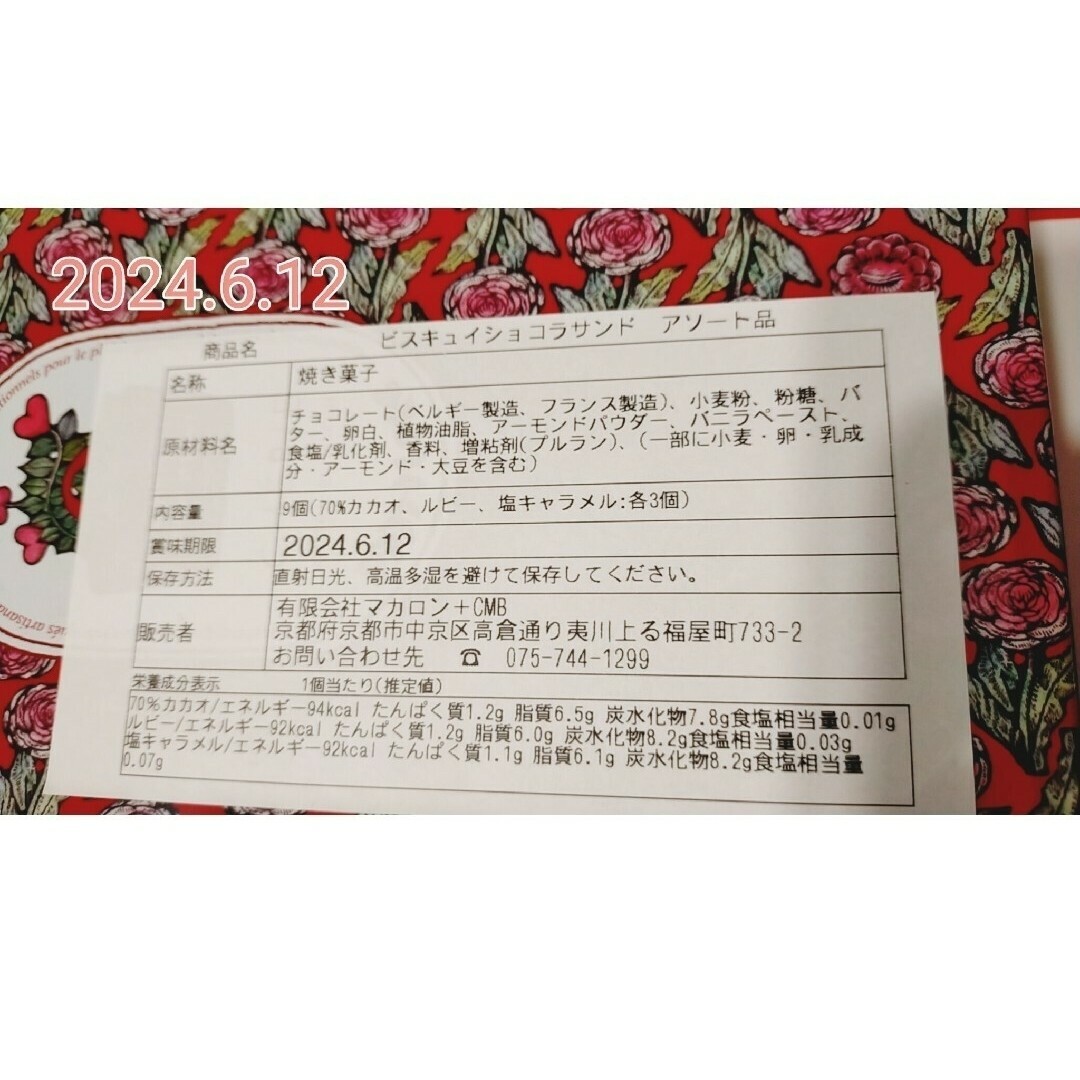 2024.6.12
商品名 ビスキュイショコラサンド アソート品
名称 焼き菓子
原材料名 チョコレート(ベルギー製造、フランス製造)、小麦粉、粉糖、バ
ター、卵白、植物油脂、アーモンドパウダー、バニラペースト、
食塩/乳化剤、香料、増粘剤(プルラン)、(一部に小麦・卵・乳成
分・アーモンド・大豆を含む)
内容量 9個(70%カカオ、ルビー、塩キャラメル:各3個)
賞味期限 2024.6.12
保存方法 直射日光、高温多湿を避けて保存してください。
販売者 有限会社マカロン+CMB
京都府京都市中京区高倉通り夷川上る福屋町733-2
お問い合わせ先 ☎ 075-744-1299
栄養成分表示 1個当たり(推定値)
70%カカオ/エネルギー94kcal たんぱく質1.2g 脂質6.5g 炭水化物7.8g食塩相当量0.01g
ルビー/エネルギー92kcal たんぱく質1.2g 脂質6.0g 炭水化物8.2g食塩相当量0.03g
塩キャラメル/エネルギー92kcal たんぱく質1.1g 脂質6.1g 炭水化物8.2g食塩相当量
0.07g
pour le